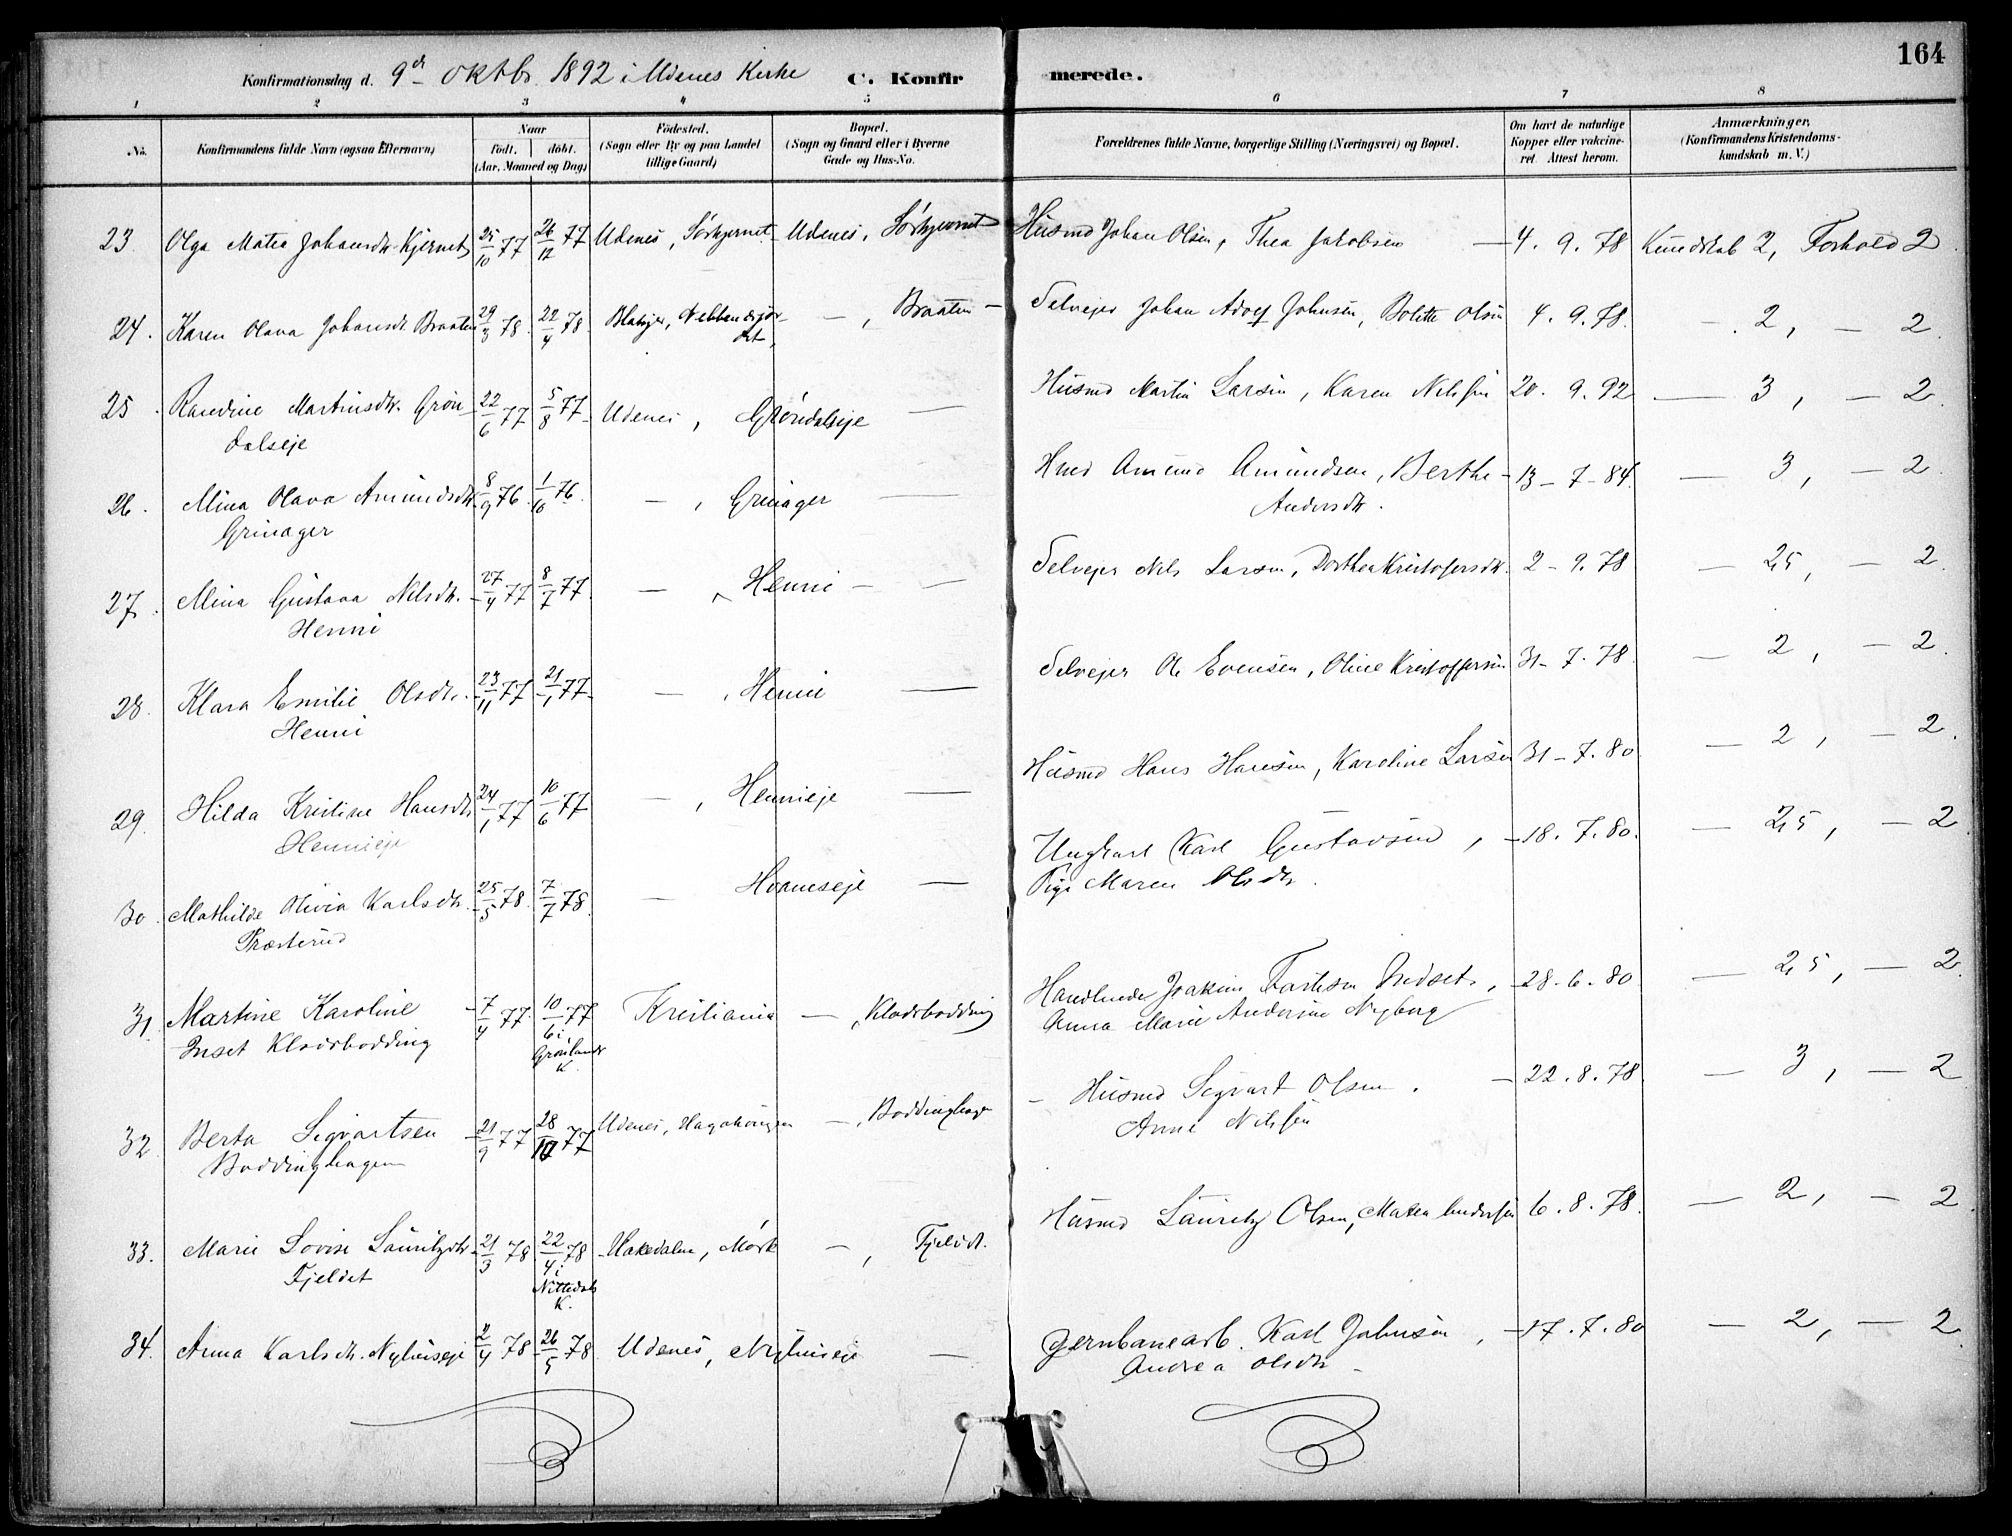 164
Konfirmationsdag d. 9de Oktbr. 1892 i Udenes Kirke C. Konfir merede.
1 2 3 4 5 6 7 8
No. Konfirmandens fulde Navn (ogsaa Efternavn) Naar født. døbt. (Aar, Maaned og Dag) Fødested. (Sogn eller By og paa Landet tillige Gaard) Bopæl. (Sogn og Gaard eller i Byerne Gade og Hus-No. Forældrenes fulde Navne, borgerlige Stilling (Næringsvei) og Bopæl. Om havt de naturlige Kopper eller vakcineret. Attest herom. Anmærkninger, (Konfirmandens Kristendomskundskab m. V.)
23 Olga Matea Johansdtr. Kjernet 25/10 77 26/12 77 Udenes, Sörkjernet Udenes, Sörkjernet Husmd Johan Olsen, Thea Jakobsen — 4. 9. 78 Kundskab 2, Forhold 2
24. Karen Olava Johansdr Braaten 29/3 78. 22/4 78 Blakjer, — , Braaten — Selvejer Johan Adolf Johnsen, Bolette Olsen 4. 9. 78. — 2, — 2.
25. Randine Martinsdtr. Grøn
dalseje 22/6 77 5/8 77 Udenes, Gröndalseje — Husmd Martin Larsen, Karen Nilssen 20. 9. 92 — 3, — 2.
26. Mina Olava Amundsdtr.
Grinager 8/9 76 1/10 76. — , Grinager — Husmd Amund Amundsen, Berthe
Andersdtr. 13 – 7 – 84. — 3, — 2.
27. Mina Gustava Nilsdtr.
Henni 27/4 77 8/7 77. — , Henni — — Selvejer Nils Larsen, Dorthea Kristofersdtr. 2 – 9. 78 — 2,5, — 2.
28. Klara Emilie Olsdtr.
Henni 23/11 77 21/1 77 — , Henni — Selvejer Ole Evensen, Oline Kristoffersen 31 – 7. 78. — 2, — 2.
29. Hilda Kristine Hansdtr.
Hennieje 24/1 77 10/6 77 — , Hennieje — Husmd Hans Hansen, Karoline Larsen 31 – 7. 80 — 2, — 2.
30. Mathilde Olivia Karlsdtr.
Præsterud 25/5 78. 7/7 78. — Hvameseje — Ungkarl Karl Gustavsen,
Pige Maren Olsdtr. — 18. 7. 80. — 2,5, — 2
31. Martine Karoline
Inset Klodsbodding 7/4 77 10/6 77 i
Grønlands
K. Kristiania — , Klodsbodding Handlende Joakim Indset,
Anna Marie Andersen Nyborg — 28. 6. 80 — 2,5, — 2.
32 Berta Sigvartsen
Boddinghagen 21/9 77 28/10 77 Udenes, — , Boddinghagen Husmd Sigvart Olsen.
Anne Nilssen — 22. 8. 78. — 3, — 2
33. Marie Lovise Lauritzdtr.
Fjeldet 21/3 78 22/4 78 i
Nittedals
K. Hakedalen, Mörk — , Fjeldet. Husmd Lauritz Olsen, Matea Anderssen 6. 8. 78. — 2, — 2
34. Anna Karlsdtr. Nyhuseje 2/4 78 26/5 78 Udenes, Nyhuseje — Jernbanearb. Karl Johnsen,
Andrea Olsdtr — 17. 7. 80 — 2, — 2.